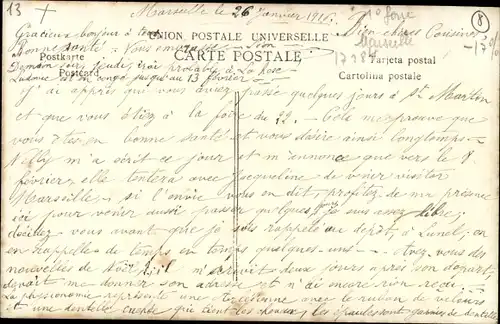 13
Marseille le 26 Janvier 191
1° foire
Marseille
8
Gracieux bonjour à
Bien chères Cousines
UNION POSTALE UNIVERSELLE
Bonne santé Vous
CARTE POSTALE
Demain soir, jeudi, irai
à La Rose
Postkarte
Postcard
Tarjeta postal
Cartolina postale
jusqu'au 13 février
J'ai appris que vous aviez passé quelques jours à St Martin
et que vous étiez à la foire du 22. Cela me prouve que
vous êtes en bonne santé et vous désire ainsi longtemps
Nelly m'a écrit ce jour et m'annonce que vers le 8
février, elle tentera avec Jacqueline de venir visiter
Marseille, si l'envie vous en dit, profitez de ma présence
ici pour venir aussi passer quelques jours je suis assez libre;
décidez vous avant que je sois rappelé au dépôt, à Lunel; on
en rappelle de temps en temps quelques-uns. Avez vous des
nouvelles de Noël, il m'écrivit deux jours après son départ,
devait me donner son adresse et n'ai encore rien reçu
La physionomie représente une avec le ruban de velours
et une dentelle qui tient les cheveux, les épaules sont garnies de dentelle